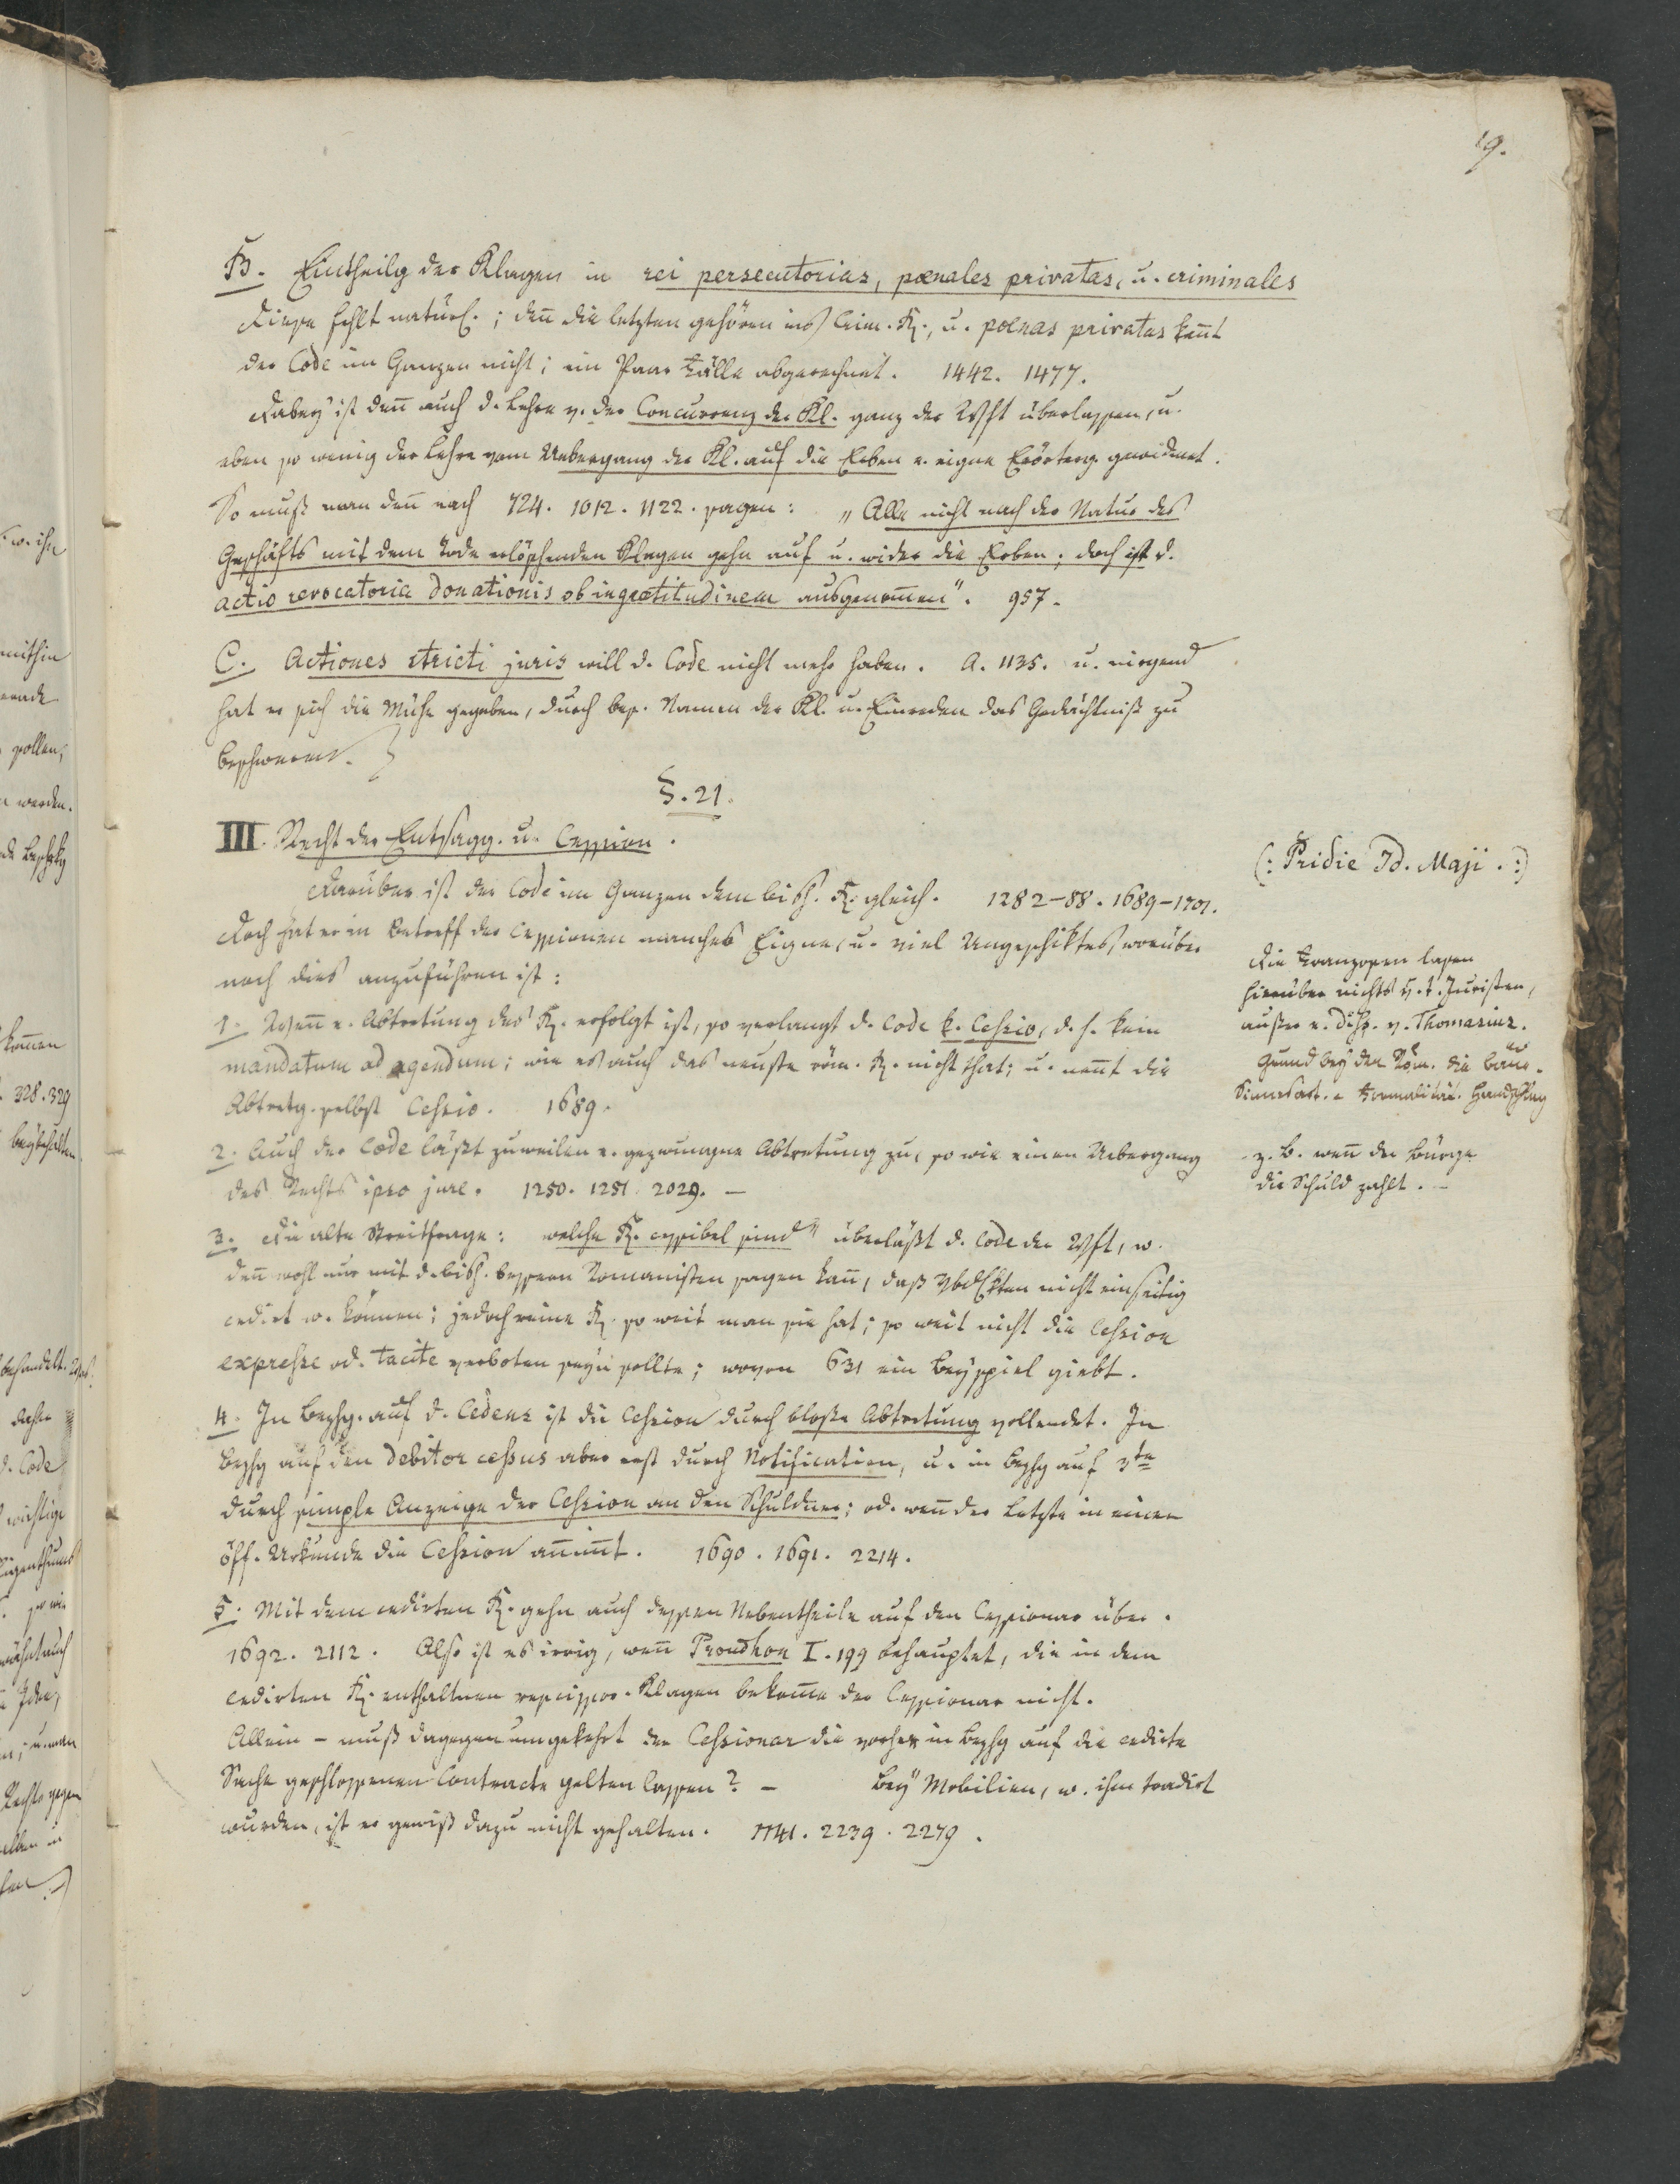 19.
B. Eintheilg der Klagen in rei persecutorias, pœnales privatas, u. criminales
Diese fehlt natürl.; deñ die letzten gehören ins Crim. R., u. poenas privatas keñt
der Code im Ganzen nicht; ein Paar Fälle abgerechnet. 1442. 1477.
Dabey ist deñ auch d. Lehre v. der Concurrenz der Kl. ganz der Wsft überlassen, u.
eben so wenig der Lehre vom Uebergang der Kl. auf die Erben e. eigne Erörterg. gewidmet.
So muß man deñ nach 724. 1012. 1122. sagen: „Alle nicht nach der Natur des
Geschäfts mit dem Tode erlöschenden Klagen gehn auf u. wider die Erben; doch ist d.
actio revocatoria donationis ob ingratitudinem ausgenom̃en“. 957.
C. Actiones stricti juris will d. Code nicht mehr haben. A. 1135. u. nirgend
hat er sich die Mühe gegeben, durch bes. Namen der Kl. u. Einreden das Gedächtniß zu
beschweren.
§. 21.
III. Recht der Entsagg. u. Cession.
Darüber ist der Code im Ganzen dem bish. R. gleich. 1282-88. 1689-1701.
Doch hat er in Betreff der Cessionen manches Eigne, u. viel Ungeschiktes, worüber
noch dies anzuführen ist:
1. Weñ e. Abtretung des R. erfolgt ist, so verlangt d. Code k. Cessio, d. h. kein
mandatum ad agendum; wie es auch das neuste röm. R. nicht that; u. neñt die
Abtretg. selbst Cessio. 1689.
2. Auch der Code läßt zuweilen e. gezwungne Abtretung zu, so wie einen Uebergang
des Rechts ipso jure. 1250. 1251. 2029. –
3. Die alte Streitfrage: welche R. cessibel sind“ überläßt d. Code der Wsft, w.
deñ wohl nur mit d. bish. bessern Romanisten sagen kañ, daß Vbdlktten nicht einseitig
cedirt w. können; jedoch seine R. so weit man sie hat; so weit nicht die Cession
expresse od. tacite verboten seyn sollte; wovon 631 ein Beyspiel giebt.
4. In Bezhg. auf d. Cedens ist die Cession durch bloße Abtretung vollendet. In
Bezhg auf den debitor cessus aber erst durch Notification, u. in Bezhg auf 3te
durch simple Anzeige der Cession an den Schuldner; od. weñ der Letzte in einer
öff. Urkunde die Cession añim̃t. 1690. 1691. 2214.
5. Mit dem cedirten R. gehn auch dessen Nebentheile auf den Cessionar über.
1692. 2112. Also ist es irrig, weñ Proudhon I. 199 behauptet, die in dem
cedirten R. enthaltnen rescissor. Klagen bekom̃e der Cessionar nicht.
Allein – muß dagegen umgekehrt der Cessionar die vorher in Bezhg auf die cedirte
Sache geschlossenen Contracte gelten lassen? – Bey Mobilien, w. ihm tradirt
wurden, ist er gewiß dazu nicht gehalten. 1141. 2239. 2279.
(: Pridie Id. Maji. :)
Die Franzosen lasen
hierüber nichts v. t. Juristen,
außer e. Diss. v. Thomasius.
Grund bey den Röm. die
Formalität.
z. B. weñ der Bürge
die Schuld zahlt. –
s. w. ihr
mithin
sollen,
werden.
kom̃en
328. 329
beybehalten
behandelt.
d. Code
wichtige
Eigenthums
so wie
Rechts gegen